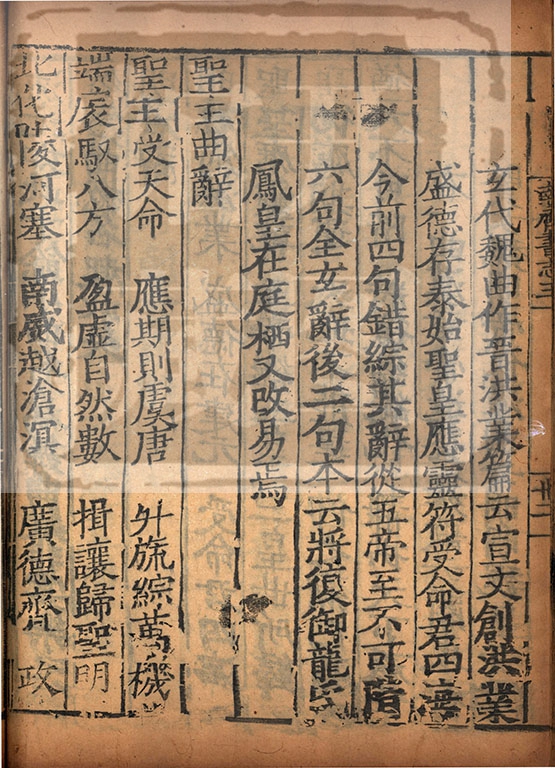 玄代魏曲作晉洪業篇云宣文創洪業
盛德存泰始聖皇應靈符受命君四海
今前四句錯綜其辭從五帝至不可階
六句全玄辭後二句本云將復御龍氏
鳳皇在庭栖又改易焉
聖王曲辭
聖主受天命 應期則虞唐 升旒綜萬機
端扆馭八方 盈虛自然數 揖讓歸聖明
北化陵河塞 南威越滄溟 廣德齊 政